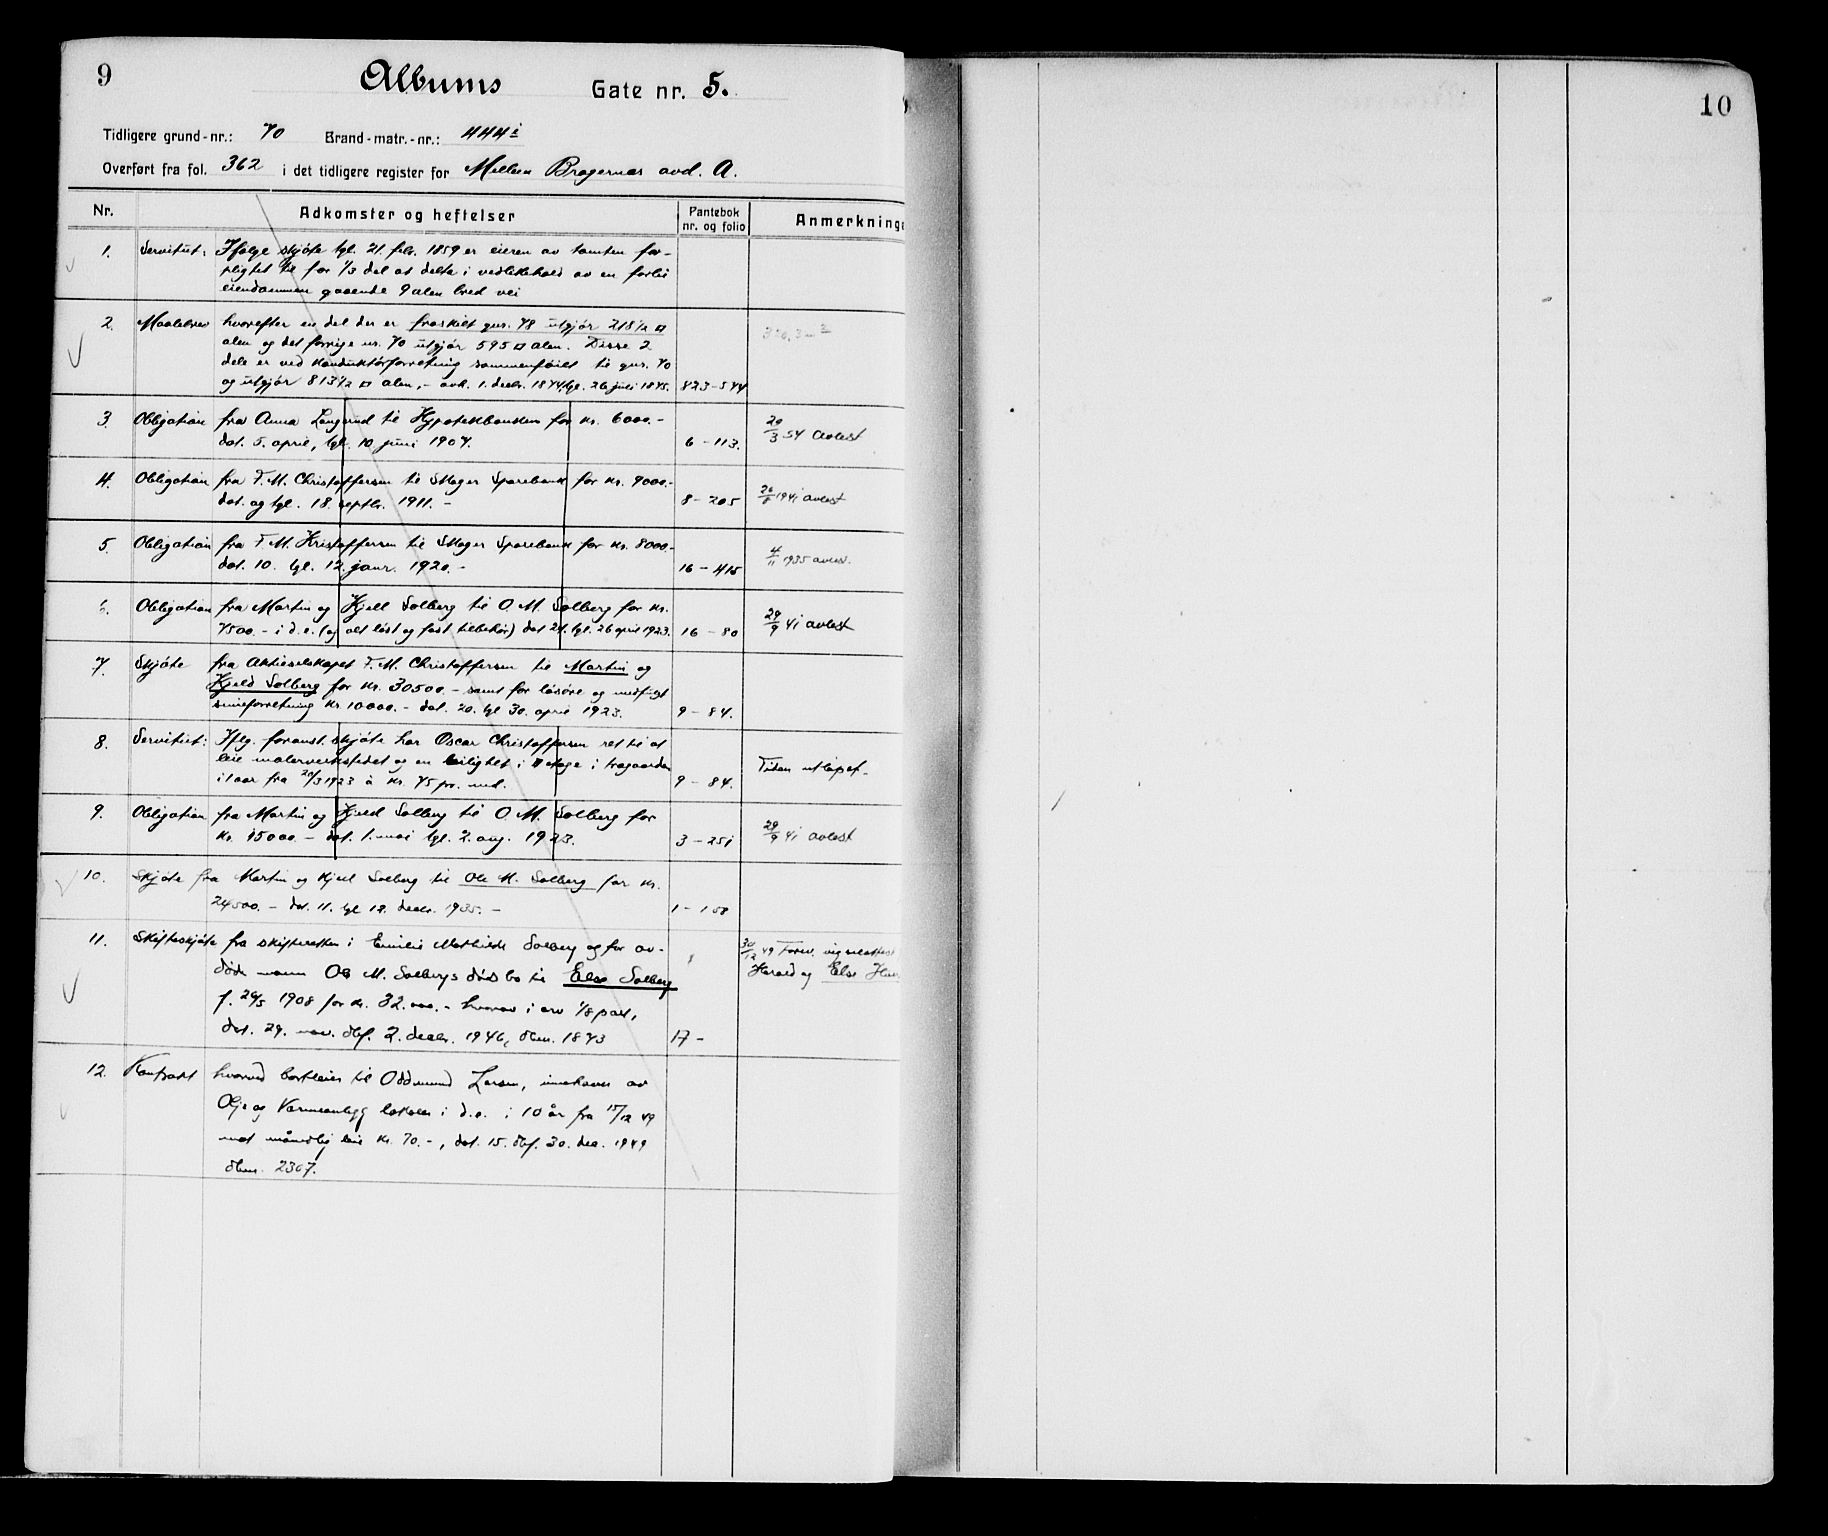 9
Albums Gate nr. 5.
Tidligere grund-nr.: 70 Brand-matr.-nr.: 444 i
Overført fra fol. 362 i det tidligere register for Mellem Bragernæs avd. A.
Nr. Adkomster og heftelser Pantebok nr. og folio Anmerkninge
1. Servitut: Ifølge skjøte tgl. 21. febr. 1859 er eieren av tomten for-
pligtet til for 1/3 del at delta i vedlikehold av en forbi
eiendommen gaaende 9 alen bred vei
2. Maalebrev hvorefter en del der er fraskilt gnr. 78 utgjør 218 1/2 □
alen og det forrige nr. 70 utgjør 595 □ alen. Disse 2
dele er ved konduktørforretning sammenføiet til gnr. 70
og utgjør 813 1/2 □ alen, - avh. 1. decbr. 1874, tgl. 26 juli 1875. 823-544
3. Obligation fra Anna Langerud til Hypotekbanken for kr. 6000.-
dat. 5. april, tgl. 10. juni 1907. 6-113. 29/3 54 avlest
4. Obligation fra F. M. Christoffersen til Skoger Sparebank for kr. 9000.-
dat. og tgl. 18. septbr. 1911. - 8-205 1941 avlest
5. Obligation fra F. M. Kristoffersen til Skoger Sparebank for kr. 8000.-
dat. 10. tgl. 12. janr. 1920. - 16-415 4/11 1935 avlest.
6. Obligation fra Martin og Kjell Solberg til O. M. Solberg for kr.
7500.- i d.e. (og alt løst og fast tilbehør) dat 24. tgl. 26 april 1923. 16-80 29/9 41 avlest
7. Skjøte fra Aktieselskapet F. M. Christoffersen til Martin og
Kjeld Solberg for kr. 30500.- samt for løsøre og medfulgt
kr. 10000.- dat. 20. tgl 30. april 1923. 9-84.
8. Servitut: Iflg. foranst. skjøte har Oscar Christoffersen ret til at
leie malerverkstedet og en leilighet i II etage i bagaarden
i 1 aar fra 20/3 1923 à kr. 75 pr. md. 9-84. Tiden utløpet.
9. Obligation fra Martin og Kjeld Solberg til O. M. Solberg for
kr. 15000.- dat. 1. mai tgl. 2. aug. 1923. 3-251 29/9 41 avlest
10. Skjøte fra Martin og Kjell Solberg til Ole M. Solberg for kr.
24500.- dat. 11. tgl 12. decbr. 1935. - 1-158
11. Skifteskjøte fra skifteretten i Emilie Mathilde Solberg og før av-
døde mann Ole M. Solbergs dødsbo til Else Solberg 30/12 49 Forev. vigselattest
f. 26/5 1908 for kr. 32.000.- hvorav i arv 1/8 part, Harald og Else
dat. 29. nov. dbf. 2. decbr. 1946, dbnr. 1873 17-
12. Kontrakt hvorved bortleies til Oddmund Larsen, innehaver av
Olje og Varmeanlegg lokaler i d.e. i 10 år fra 15/12 49
mot månedlig leie kr. 70.-, dat. 15. dbf. 30. des. 1949
dbnr. 2307.
10